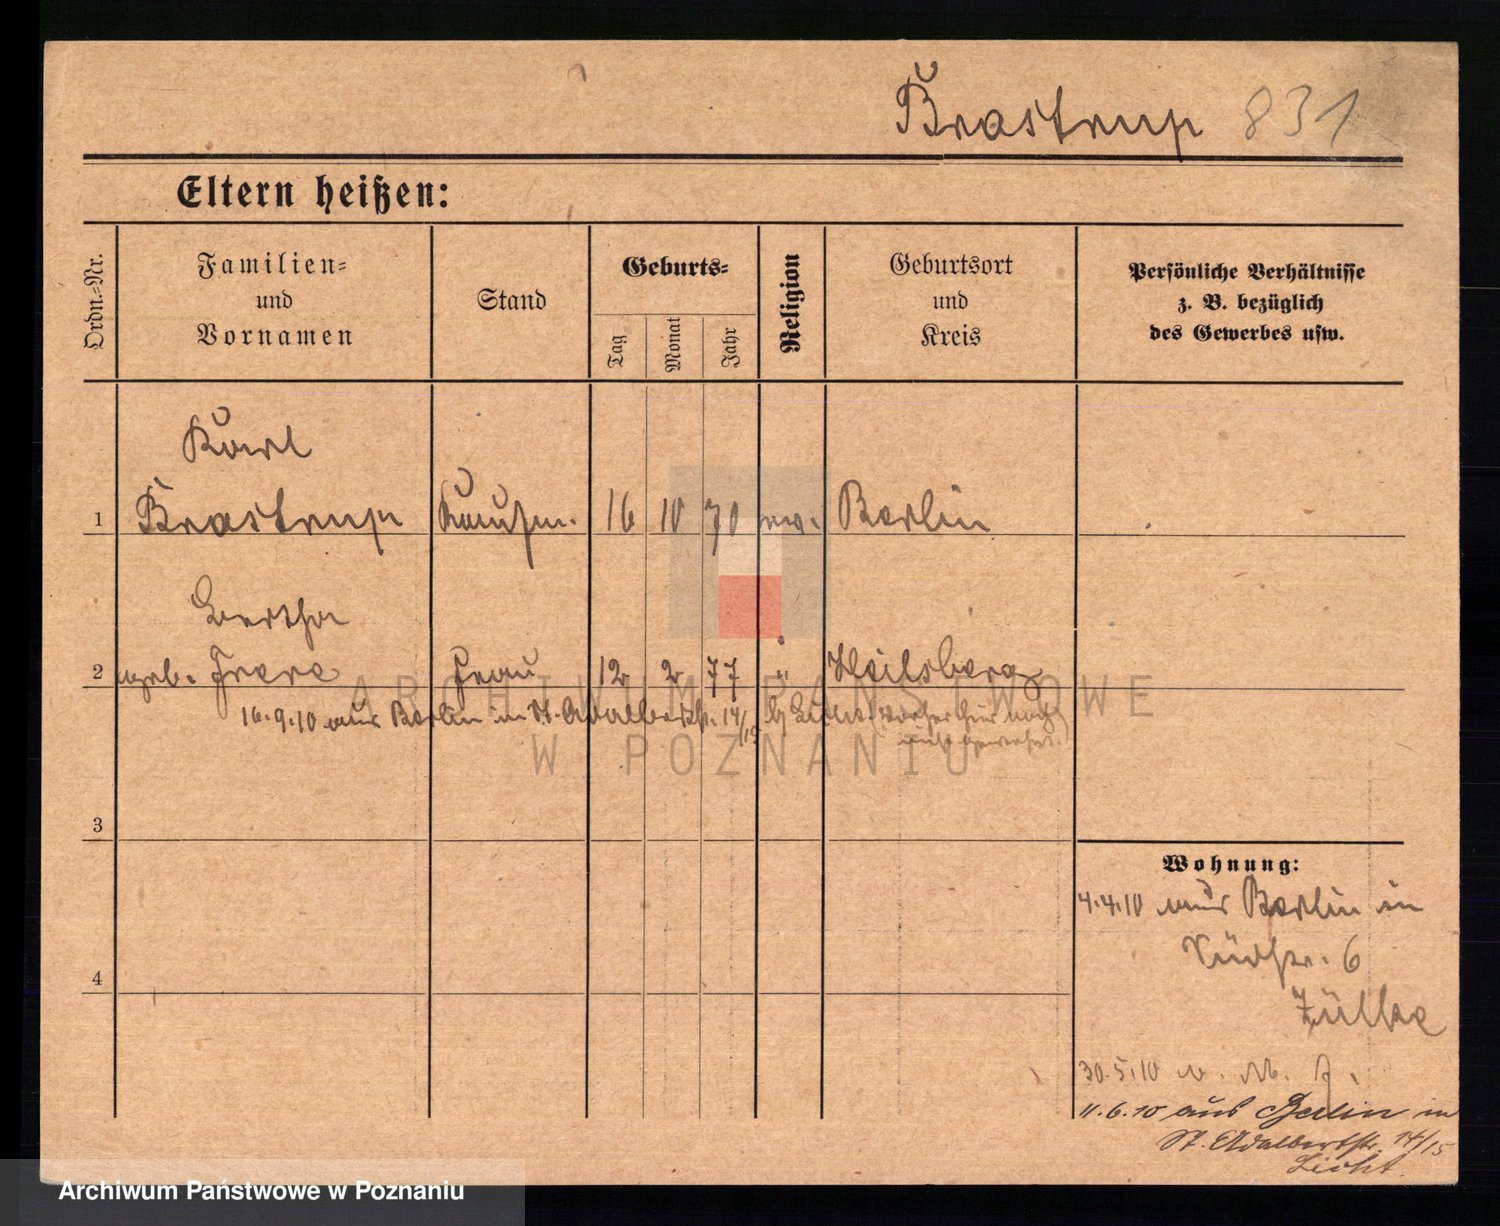 Brastrup 831
Eltern heißen:
Ordn.-Nr.
Familien-
und
Vornamen
Stand
Geburts-
Tag
Monat
Jahr
Religion
Geburtsort
und
Kreis
Persönliche Verhältnisse
z. B. bezüglich
des Gewerbes usw.
Karl
1 Brastrup Kaufm. 16 10 70 ev. Berlin
Bertha
2 geb. Frere Frau 12 2 77 " Heilsberg
16.9.10 aus Berlin in St. Adalbertstr. 14/15 b/ Licht. vorher hier noch
nicht gewohnt.
3
Wohnung:
4.4.10 aus Berlin in
Südstr. 6
Zülke
4
30.5.10
11.6.10 aus Berlin in
St. Adalbertstr. 14/15
Licht.
ARCHIWUM PAŃSTWOWE
W POZNANIU
Archiwum Państwowe w Poznaniu